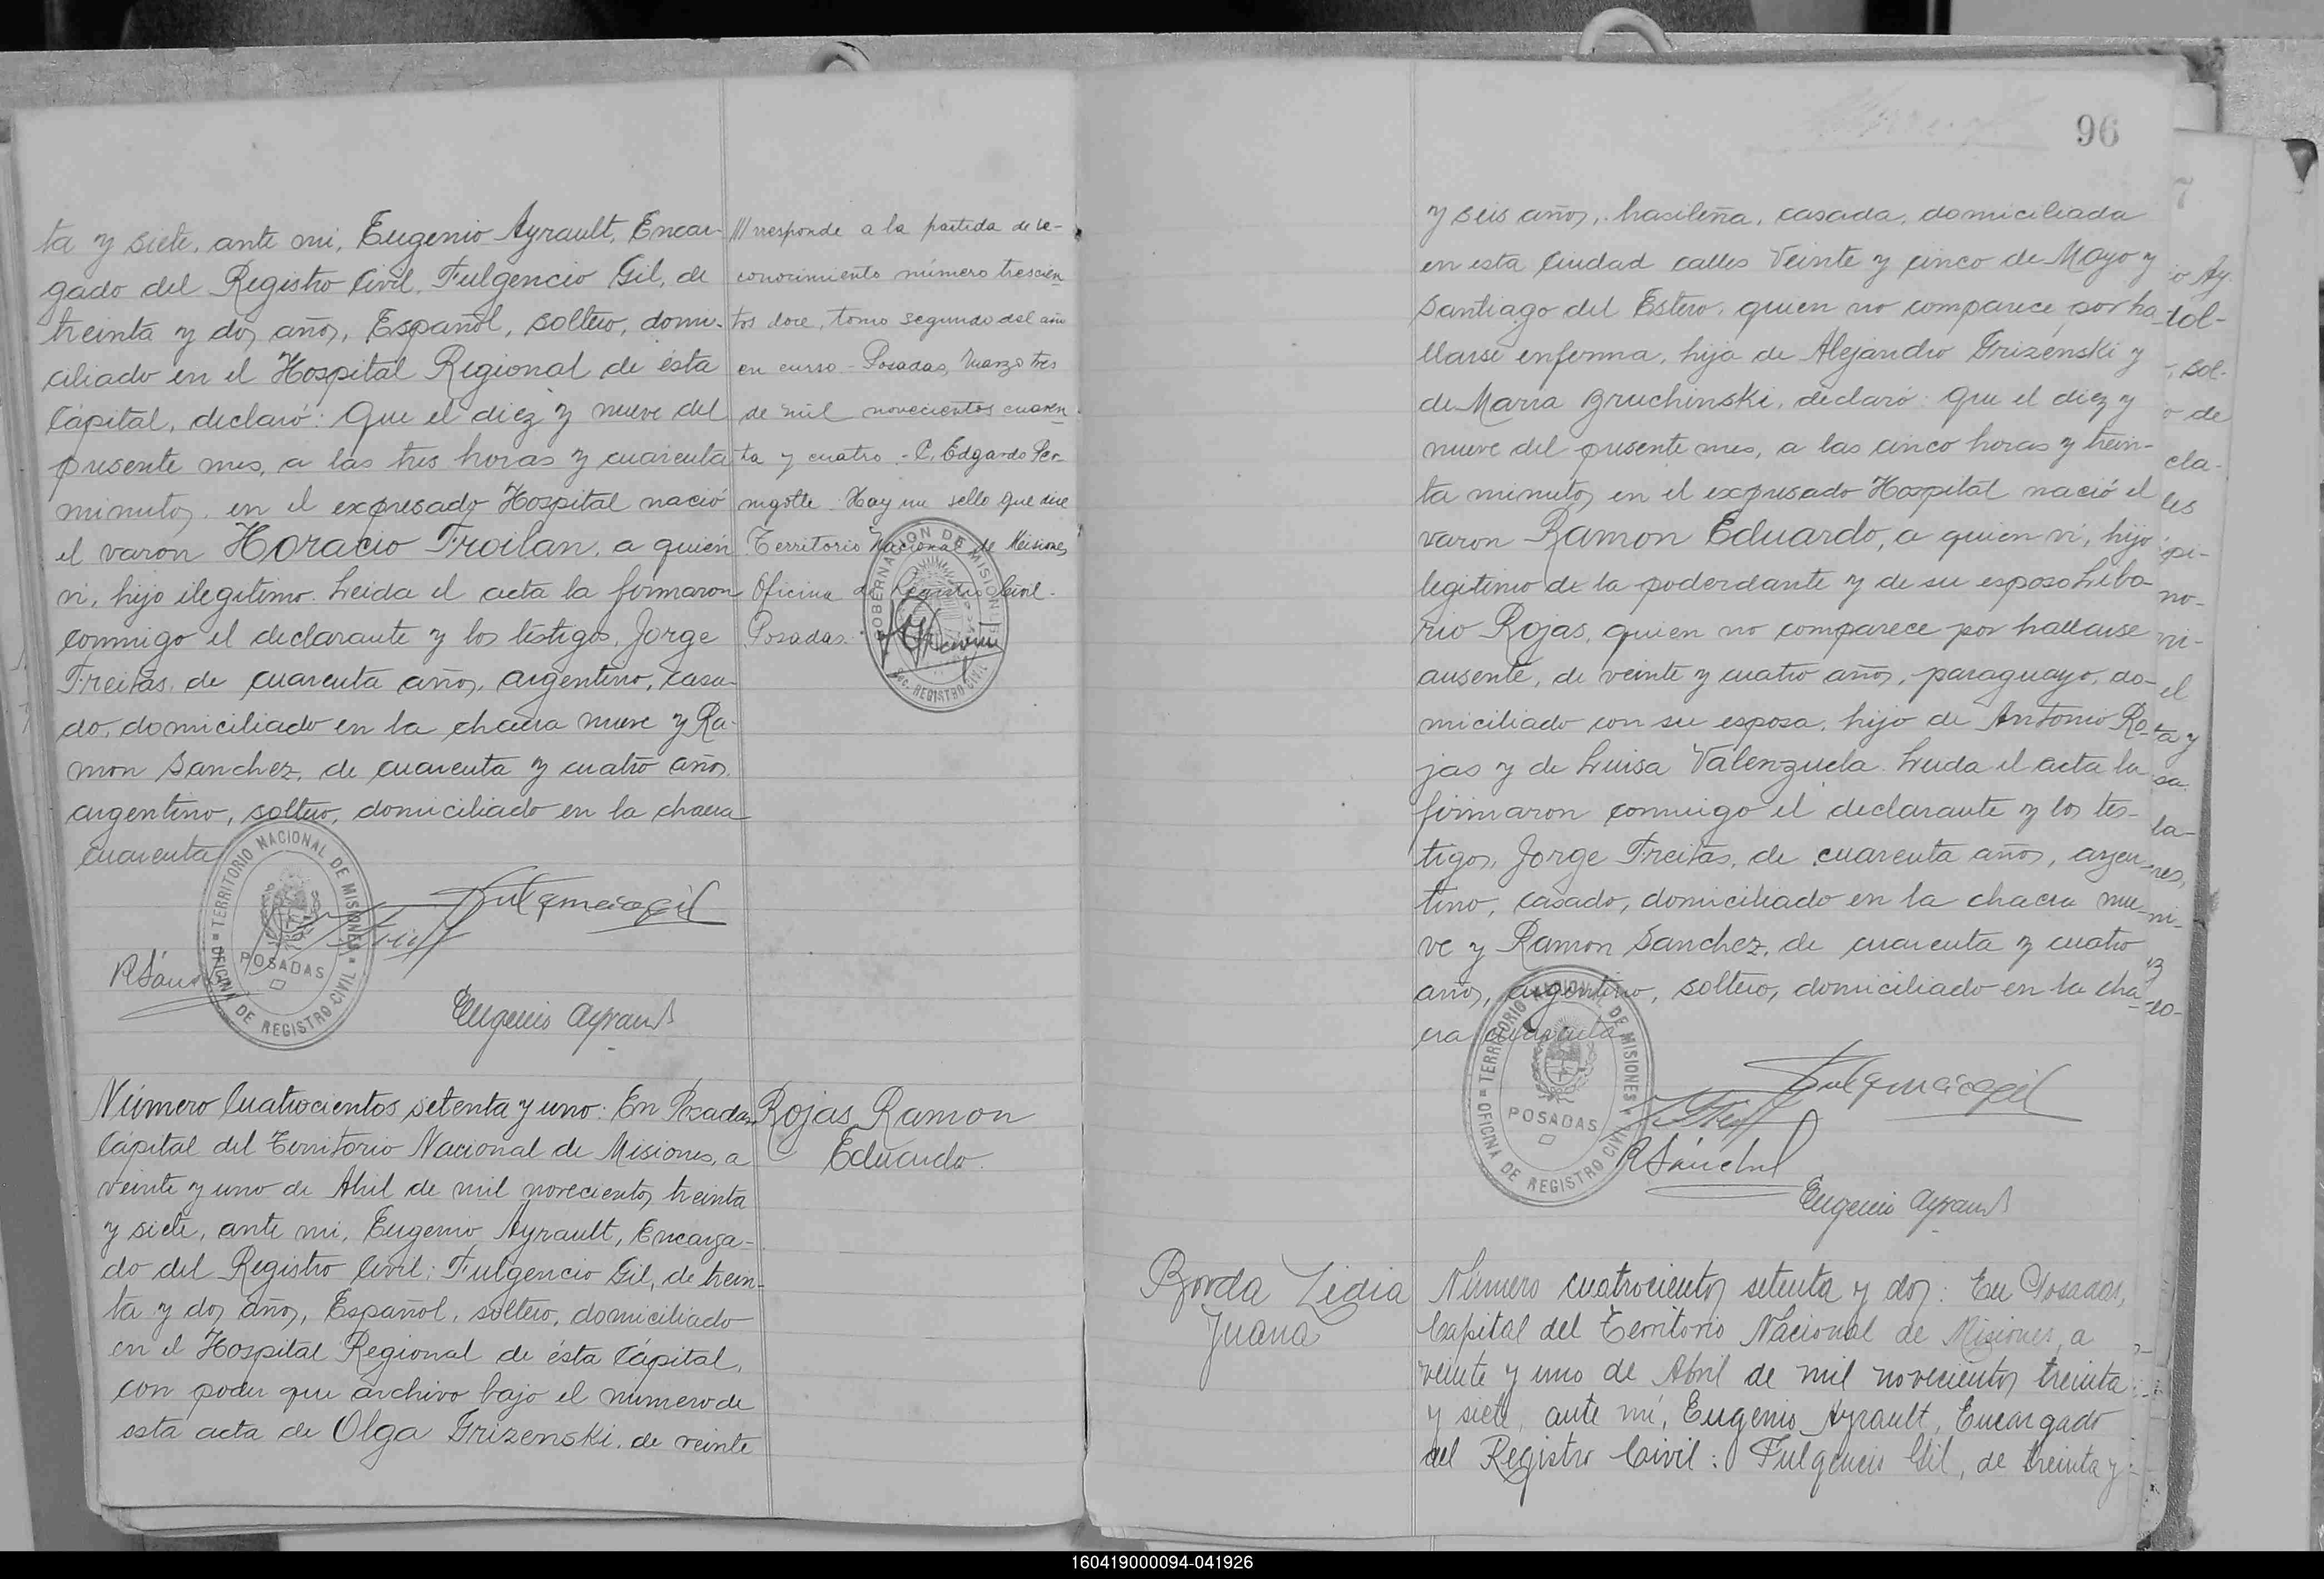 ta y siete, ante mi, Eugenio Ayrault, Encar-
gado del Registro Civil, Fulgencio Gil, de
treinta y dos años, Español, soltero, domi-
ciliado en el Hospital Regional de ésta
Cápital, declaró: Que el diez y nueve del
presente mes, a las tres horas y cuarenta
minutos, en el expresado Hospital nació
el varón Horacio Froilan, a quién
ví, hijo ilegitimo. Leida el acta la firmaron
conmigo el declarante y los testigos, Jorge
Freitas, de cuarenta años, argentino, casa-
do, domiciliado en la chacra nueve y Ra-
mon Sanchez, de cuarenta y cuatro años,
argentino, soltero, domiciliado en la chacra
cuarenta
TERRITORIO NACIONAL DE MISIONES
POSADAS
OFICINA DE REGISTRO CIVIL
Fulgencio Gil
R Sánchez
Eugenio Ayrault
/// rresponde a la partida de re-
conocimiento número trescien
tos doce, tomo segundo del año
en curso - Posadas, Marzo tres
de mil novecientos cuaren
ta y cuatro - C. Edgardo
Hay un sello que dice
Territorio Nacional de Misiones
Oficina de Registro Civil -
Posadas.
GOBERNACION DE MISIONES
REGISTRO CIVIL
Número Cuatrocientos setenta y uno: En Posadas
Cápital del Territorio Nacional de Misiones, a
veinte y uno de Abril de mil novecientos treinta
y siete, ante mi, Eugenio Ayrault, Encarga-
do del Registro Civil; Fulgencio Gil, de trein-
ta y dos años, Español, soltero, domiciliado
en el Hospital Regional de ésta Cápital,
con poder que archivo bajo el número de
esta acta de Olga Grizenski, de veinte
Rojas Ramon
Eduardo.
96
y seis años, brasileña, casada, domiciliada
en esta Ciudad calles Veinte y cinco de Mayo y
Santiago del Estero, quien no comparece por ha-
llarse enferma, hija de Alejandro Grizenski y
de María Gruchinski, declaró: Que el diez y
nueve del presente mes, a las cinco horas y trein-
ta minutos en el expresado Hospital nació el
varon Ramon Eduardo, a quien ví, hijo
legitimo de la poderdante y de su esposo Libo-
rio Rojas, quien no comparece por hallarse
ausente, de veinte y cuatro años, paraguayo, do-
miciliado con su esposa, hijo de Antonio Ro-
jas y de Luisa Valenzuela. Leida el acta la
firmaron conmigo el declarante y los tes-
tigos, Jorge Freitas, de cuarenta años, argen-
tino, casado, domiciliado en la chacra nue-
ve y Ramon Sanchez, de cuarenta y cuatro
años, argentino, soltero, domiciliado en la cha-
cra cuarenta
TERRITORIO NACIONAL DE MISIONES
POSADAS
OFICINA DE REGISTRO CIVIL
Fulgencio Gil
R Sánchez
Eugenio Ayrault
Borda Lidia
Juana
Número cuatrocientos setenta y dos: En Posadas,
Capital del Territorio Nacional de Misiones, a
veinte y uno de Abril de mil novecientos treinta
y siete, ante mí, Eugenio Ayrault, Encargado
del Registro Civil: Fulgencio Gil, de treinta y
160419000094-041926